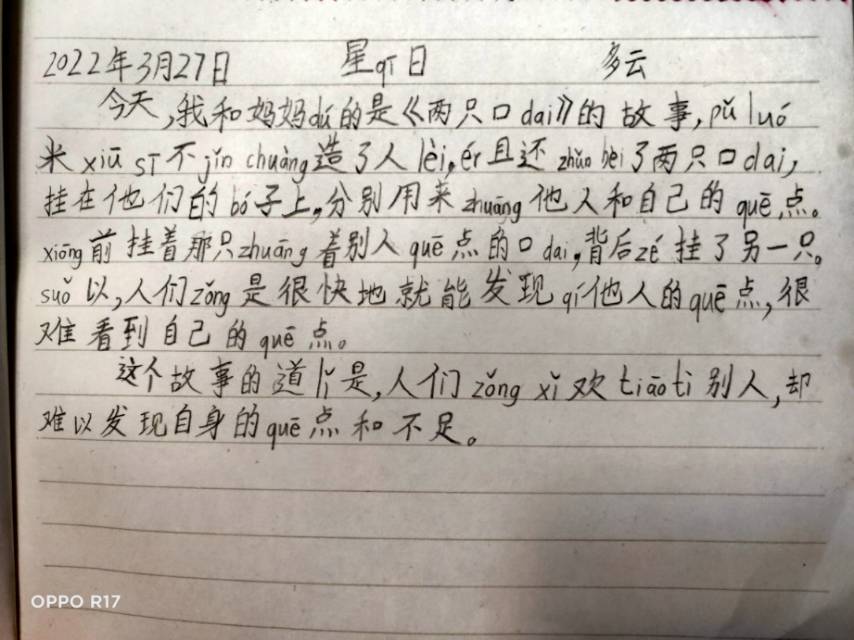 2022年3月27日 星qī日 多云
今天,我和妈妈dú的是《两只口dai》的故事,pǔ luó
米xiū sī不jǐn chuàng造了人lèi,ér且还zhǔn bèi了两只口dai,
挂在他们的bó子上,分别用来zhuāng他人和自己的quē点。
xiōng前挂着那只zhuāng着别人quē点的口dai,背后zé挂了另一只。
suǒ以,人们zǒng是很快地就能发现qí他人的quē点,很
难看到自己的quē点。
这个故事的道lǐ是,人们zǒng xǐ欢tiāo tì别人,却
难以发现自身的quē点和不足。
OPPO R17